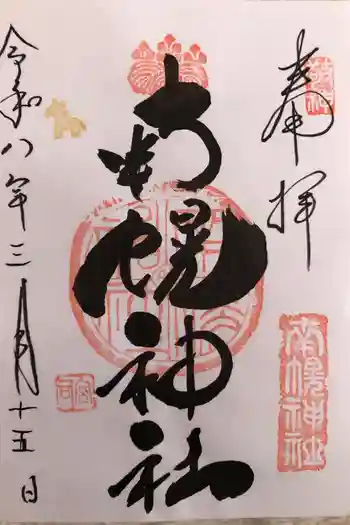 奉拝
南幌神社
令和八年三月十五日
南幌神社
宮司